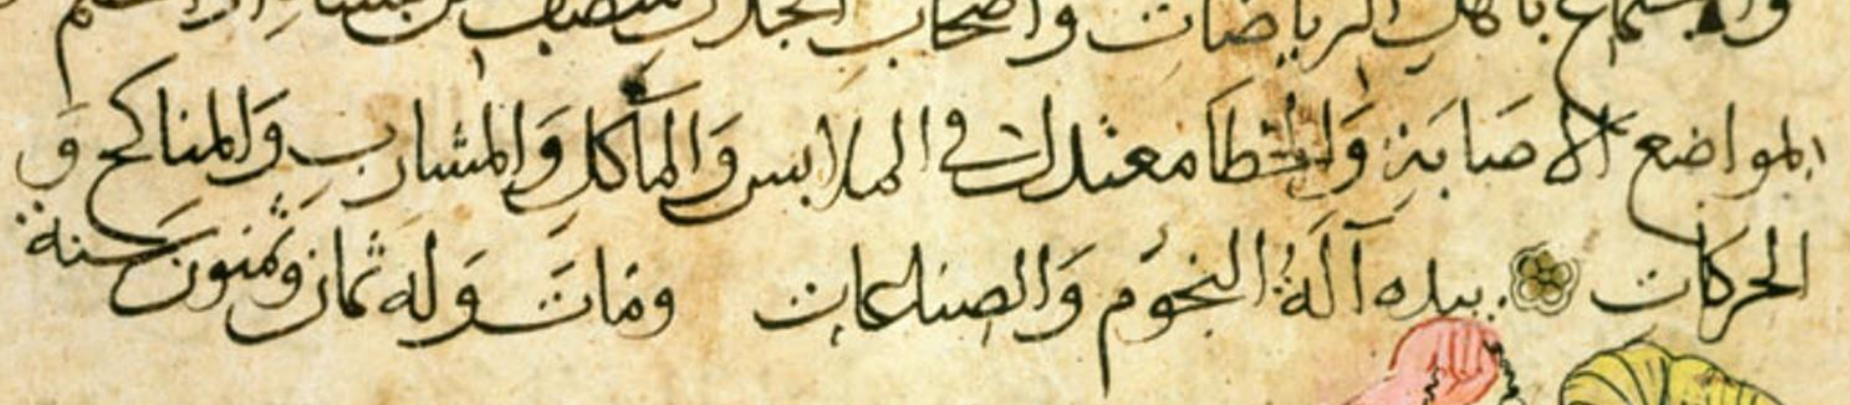 باهل الرياضات واصحاب
المواضع الاصابة والخطا معتدل في الملابس والماكل والمشارب والمناكح و
الحركات بيده آلة النجوم والصناعات ومات وله ثمان وثمنون سنة